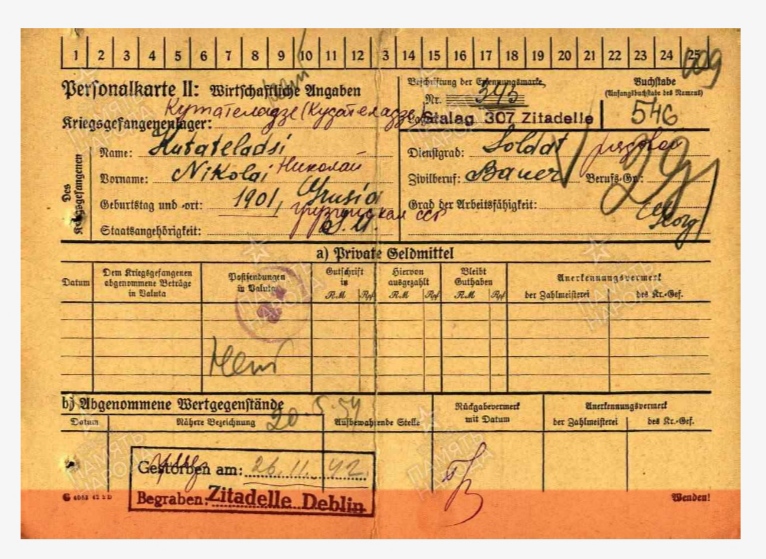 1 2 3 4 5 6 7 8 9 10 11 12 3 14 15 16 17 18 19 20 21 22 23 24 25
609
Personalkarte II: Wirtschaftliche Angaben
Beschriftung der Erkennungsmarke
Nr. 345
Buchstabe
(Anfangsbuchstabe des Namens)
Кутателадзе (Кусателадзе)
Kriegsgefangenenlager:
Stalag 307 Zitadelle
546
Des Kriegsgefangenen
Name: Kutateladsi
Vorname: Nikolai Николай
Geburtstag und -ort: 1901, Grusia
Грузинская сср
Staatsangehörigkeit: S.U.
Dienstgrad: Soldat рядовой
Zivilberuf: Bauer Berufs-Gr.:
29
Grad der Arbeitsfähigkeit:
Georg
a) Private Geldmittel
Datum
Dem Kriegsgefangenen abgenommene Beträge in Valuta
Postsendungen in Valuta
Gutschrift in
RM Rpf
Hiervon ausgezahlt
RM Rpf
Bleibt Guthaben
RM Rpf
Anerkennungsvermerk
der Zahlmeisterei des Kr.-Gef.
b) Abgenommene Wertgegenstände
Datum
Nähere Bezeichnung
Aufbewahrende Stelle
Rückgabevermerk mit Datum
Anerkennungsvermerk
der Zahlmeisterei des Kr.-Gef.
Gestorben am: 26.11.42
Begraben: Zitadelle Deblin
Wenden!
ПАМЯТЬ НАРОДА